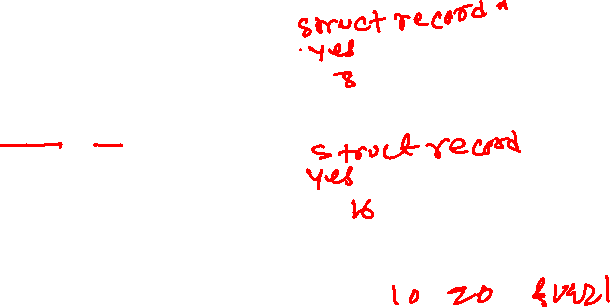 struct record *
yes
8
struct record
yes
16
10 20 &var1